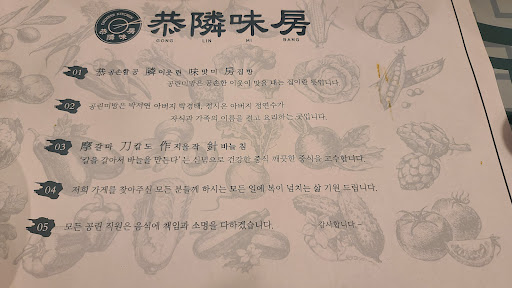 恭隣味房
GONG LIN MI BANG
01 恭 공손할 공 隣 이웃 린 味 맛 미 房 집 방
공린미방은 공손한 이웃이 맛을 내는 집이란 뜻입니다
02 공린미방은 박지연 아버지 박경태, 정시온 아버지 정연수가
자식과 가족의 이름을 걸고 요리하는 곳입니다.
03 摩 갈 마 刀 칼 도 作 지을 작 針 바늘 침
'칼을 갈아서 바늘을 만든다'는 신념으로 건강한 중식 깨끗한 중식을 고수합니다.
04 저희 가게를 찾아주신 모든 분들께 하시는 모든 일에 복이 넘치는 삶 기원 드립니다.
05 모든 공린 직원은 음식에 책임과 소명을 다하겠습니다. - 감사합니다 -